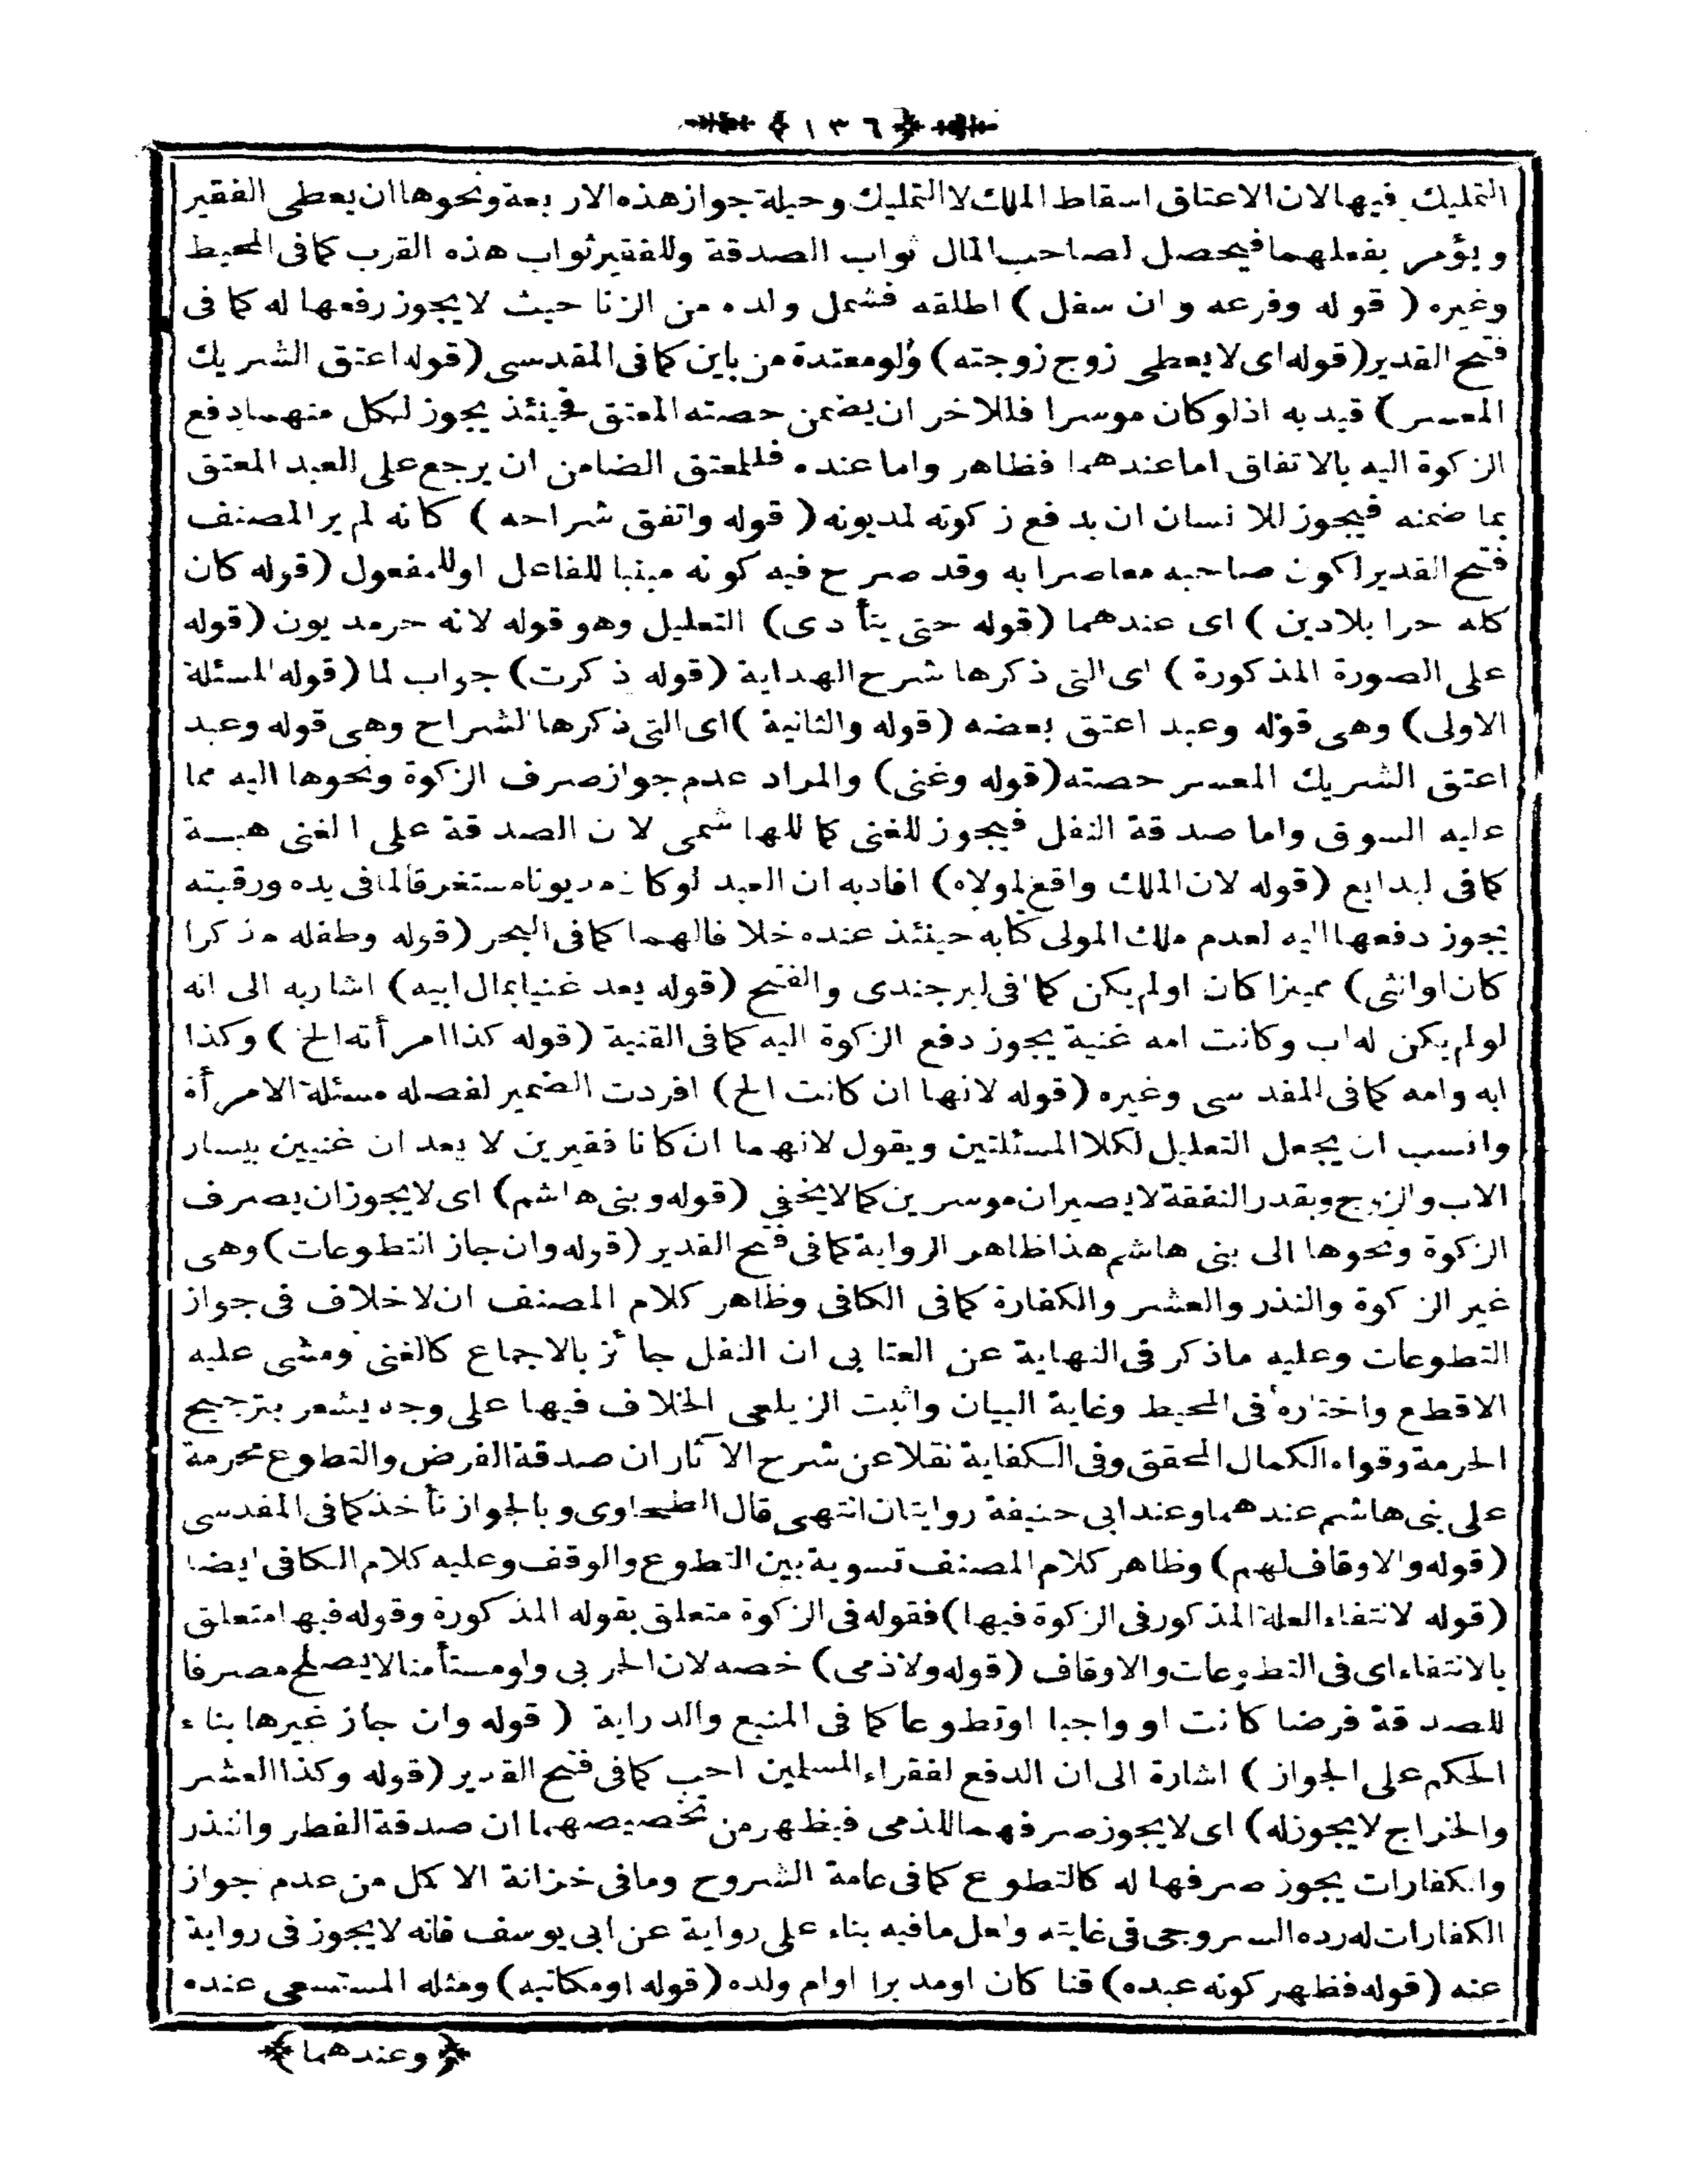 ﴿ ١٣٦ ﴾
التمليك فيها لان الاعتاق اسقاط الملك لا التمليك وحيلة جواز هذه الاربعة ونحوها ان يعطى الفقير
ويؤمر بفعلهما فيحصل لصاحب المال ثواب الصدقة وللفقير ثواب هذه القرب كما فى المحيط
وغيره (قوله وفرعه وان سفل) اطلقه فشمل ولده من الزنا حيث لا يجوز رفعها له كما فى
فتح القدير (قوله اى لا يعطى زوج زوجته) ولو معتدة من باين كما فى المقدسى (قوله اعتق الشريك
المعسر) قيد به اذ لو كان موسرا فللاخر ان يضمن حصته المعتق فحينئذ يجوز لكل منهما دفع
الزكوة اليه بالاتفاق اما عندهما فظاهر واما عنده فللمعتق الضامن ان يرجع على العبد المعتق
بما ضمنه فيجوز للانسان ان يدفع زكوته لمديونه (قوله واتفق شراحه) كانه لم ير المصنف
فتح القدير لكون صاحبه معاصرا به وقد صرح فيه كونه مبنيا للفاعل او للمفعول (قوله كان
كله حرا بلا دين) اى عندهما (قوله حتى يتأدى) التعليل وهو قوله لانه حر مديون (قوله
على الصورة المذكورة) اى التى ذكرها شرح الهداية (قوله ذكرت) جواب لما (قوله المسئلة
الاولى) وهى قوله وعبد اعتق بعضه (قوله والثانية) اى التى ذكرها الشراح وهى قوله وعبد
اعتق الشريك المعسر حصته (قوله وغنى) والمراد عدم جواز صرف الزكوة ونحوها اليه مما
عليه السوق واما صدقة النفل فيجوز للغنى كما للهاشمى لان الصدقة على الغنى هبة
كما فى البدايع (قوله لان الملك واقع لمولاه) افاد به ان العبد لو كان مديونا مستغرقا لما فى يده ورقبته
يجوز دفعها اليه لعدم ملك المولى كتابه حينئذ عنده خلافا لهما كما فى البحر (قوله وطفله مذكرا
كان او انثى) مميزا كان اولم يكن كما فى البرجندى والفتح (قوله يعد غنيا بمال ابيه) اشار به الى انه
لو لم يكن له اب وكانت امه غنية يجوز دفع الزكوة اليه كما فى القنية (قوله كذا امرأته الخ) وكذا
ابه وامه كما فى المقدسى وغيره (قوله لانها ان كانت الخ) افردت الضمير لفصله مسئلة الامرأة
وانسب ان يجعل التعليل لكلا المسئلتين ويقول لانهما ان كانا فقيرين لا يعدان غنيين بيسار
الاب والزوج وبقدر النفقة لا يصيران موسرين كما لا يخفى (قوله وبنى هاشم) اى لا يجوز ان يصرف
الزكوة ونحوها الى بنى هاشم هذا ظاهر الرواية كما فى فتح القدير (قوله وان جاز التطوعات) وهى
غير الزكوة والنذر والعشر والكفارة كما فى الكافى وظاهر كلام المصنف ان لا خلاف فى جواز
التطوعات وعليه ما ذكر فى النهاية عن العتابى ان النفل جائز بالاجماع كالغنى ومشى عليه
الاقطع واختاره فى المحيط وغاية البيان واثبت الزيلعى الخلاف فيها على وجه يشعر بترجيح
الحرمة وقواه الكمال المحقق وفى الكفاية نقلا عن شرح الآثار ان صدقة الفرض والتطوع محرمة
على بنى هاشم عندهما وعند ابى حنيفة روايتان انتهى قال الطحاوى وبالجواز نأخذ كما فى المقدسى
(قوله والاوقاف لهم) وظاهر كلام المصنف تسوية بين التطوع والوقف وعليه كلام الكافى ايضا
(قوله لانتفاء العلة المذكور فى الزكوة فيها) فقوله فى الزكوة متعلق بقوله المذكورة وقوله فيها متعلق
بالانتفاء اى فى التطوعات والاوقاف (قوله ولا ذمى) خصه لان الحربى ولو مستأمنا لا يصلح مصرفا
للصدقة فرضا كانت او واجبا اوتطوعا كما فى المنبع والدراية (قوله وان جاز غيرها بناء
الحكم على الجواز) اشارة الى ان الدفع لفقراء المسلمين احب كما فى فتح القدير (قوله وكذا العشر
والخراج لا يجوز له) اى لا يجوز صرفهما للذمى فيظهر من تخصيصهما ان صدقة الفطر والنذر
والكفارات يجوز صرفها له كالتطوع كما فى عامة الشروح وما فى خزانة الاكمل من عدم جواز
الكفارات له رده السروجى فى غايته ولعل ما فيه بناء على رواية عن ابى يوسف فانه لا يجوز فى رواية
عنه (قوله فظهر كونه عبده) قنا كان اومدبرا اوام ولده (قوله اومكاتبه) ومثله المستسعى عنده
﴿وعندهما﴾